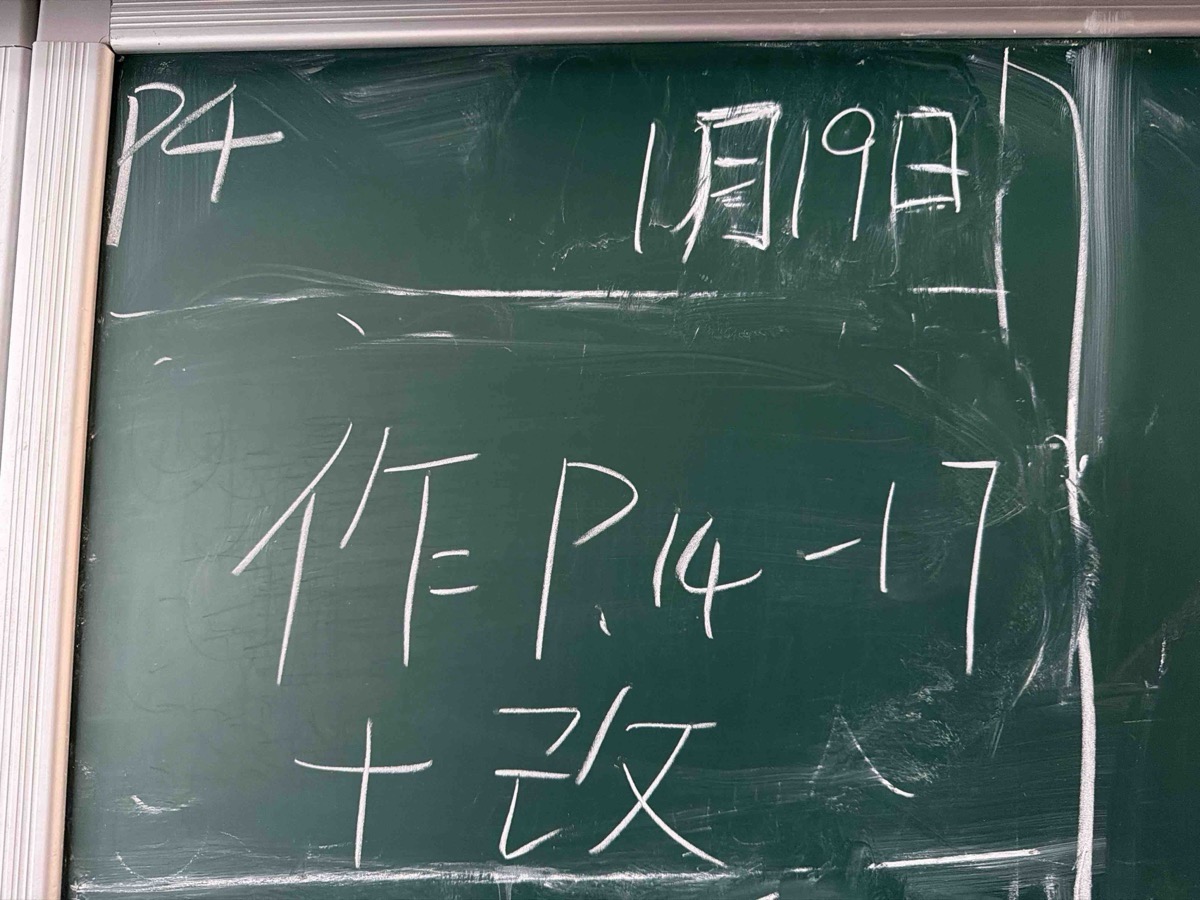 P4 1月19日
作 P.14-17
+改